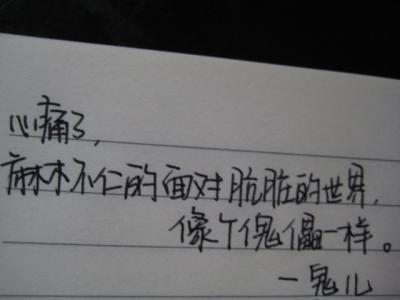 心痛了,
麻木不仁的面对肮脏的世界,
像个傀儡一样。
一鬼儿